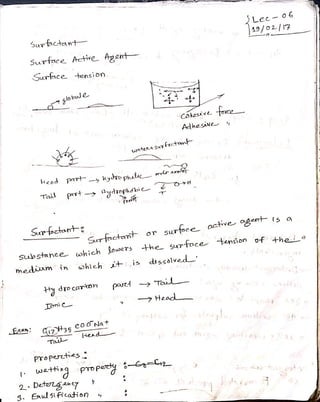 Lec - 06
19/02/17
Surfactant
Surface Active Agent
Surface tension
globule
Cohesive force
Adhesive "
water+surfactant
Head part → hydrophilic
Tail part → Hydrophobic
Surfactant :
Surfactant or surface active agent is a
substance which lowers the surface tension of the
medium in which it is dissolved.
Hydrocarbon part → Tail
Ionic " → Head
Exam: C17H35 COO⁻Na⁺
Tail Head
Properties :
1. Wetting property :-
2. Detergency " :
3. Emulsification " :